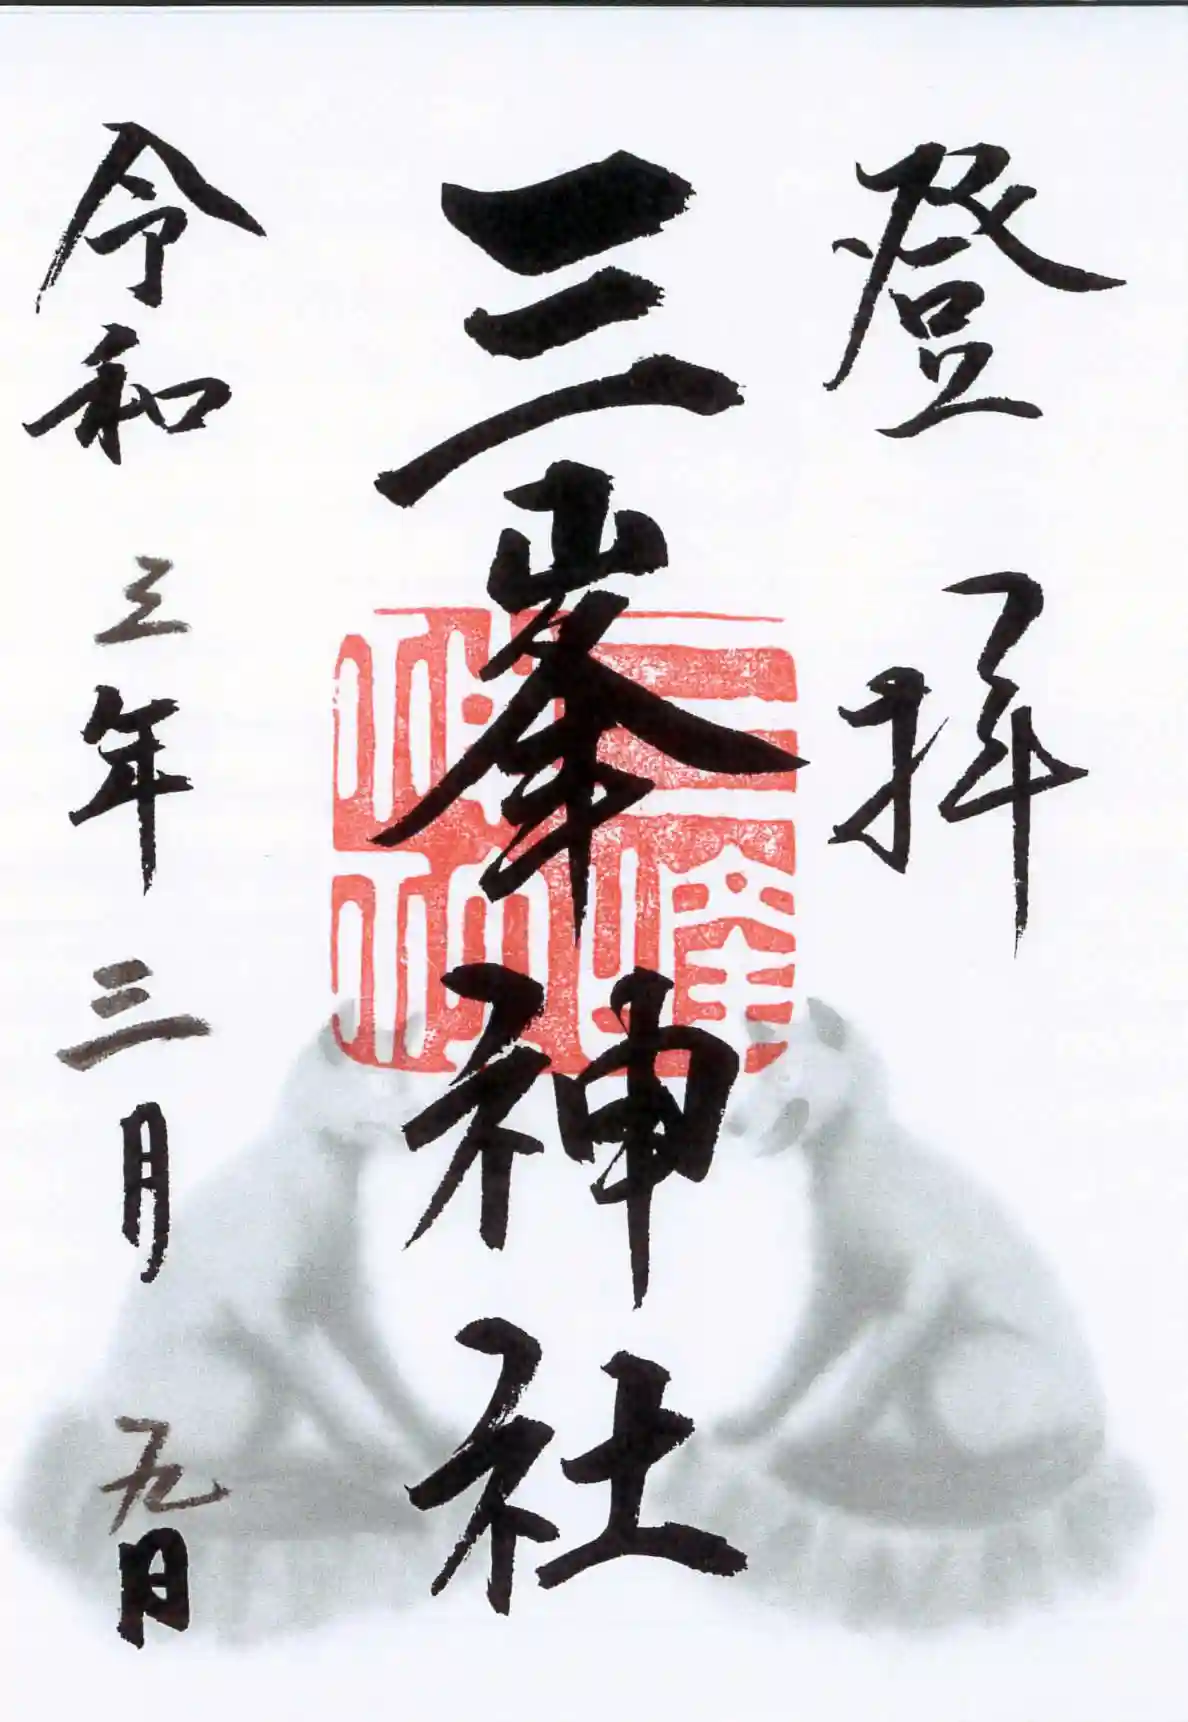 登拝
三峯神社
三峯神社
令和三年三月九日